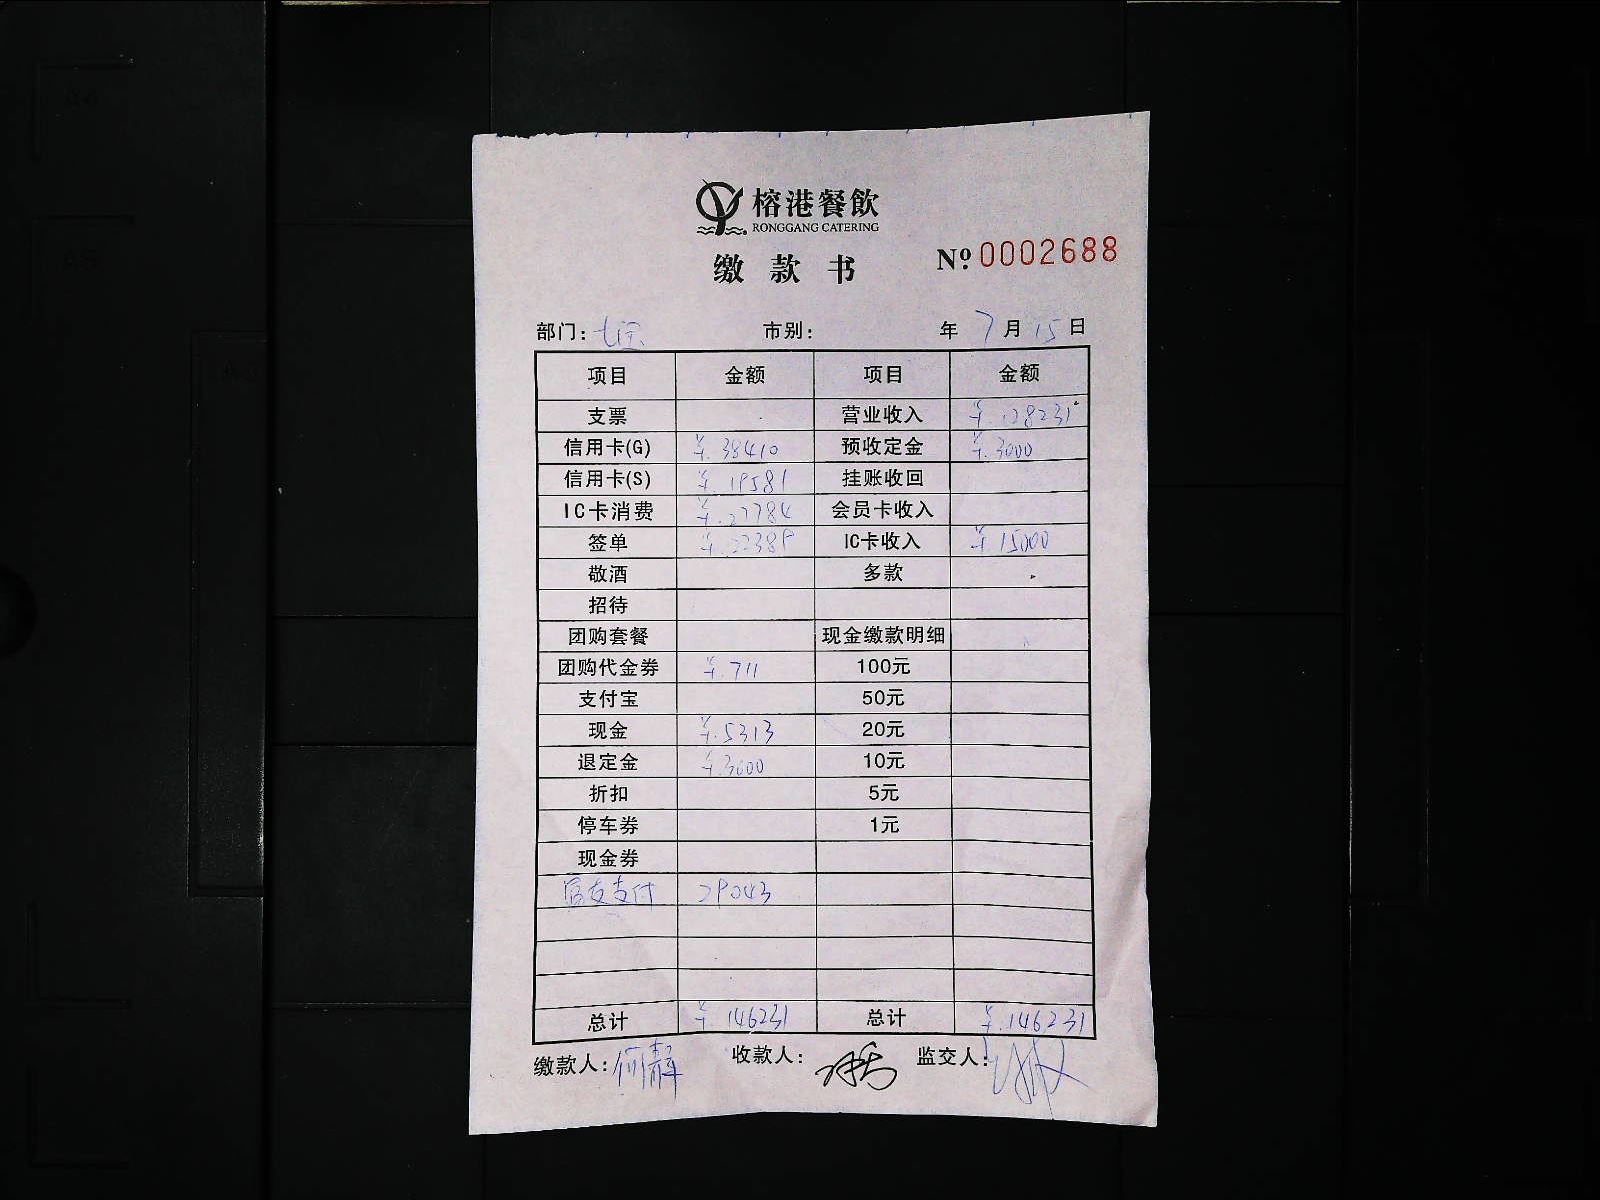 榕港餐飲
RONGGANG CATERING
缴款书 Nº 0002688
部门：七宝 市别： 年 7 月 15 日
项目 金额 项目 金额
支票 营业收入 ¥.128231
信用卡(G) ¥.38410 预收定金 ¥.3000
信用卡(S) ¥.19581 挂账收回
IC卡消费 ¥.27784 会员卡收入
签单 ¥.22389 IC卡收入 ¥.15000
敬酒 多款
招待
团购套餐 现金缴款明细
团购代金券 ¥.711 100元
支付宝 50元
现金 ¥.5313 20元
退定金 ¥.3000 10元
折扣 5元
停车券 1元
现金券
富友支付 29043
总计 ¥.146231 总计 ¥.146231
缴款人：何静 收款人： 监交人：